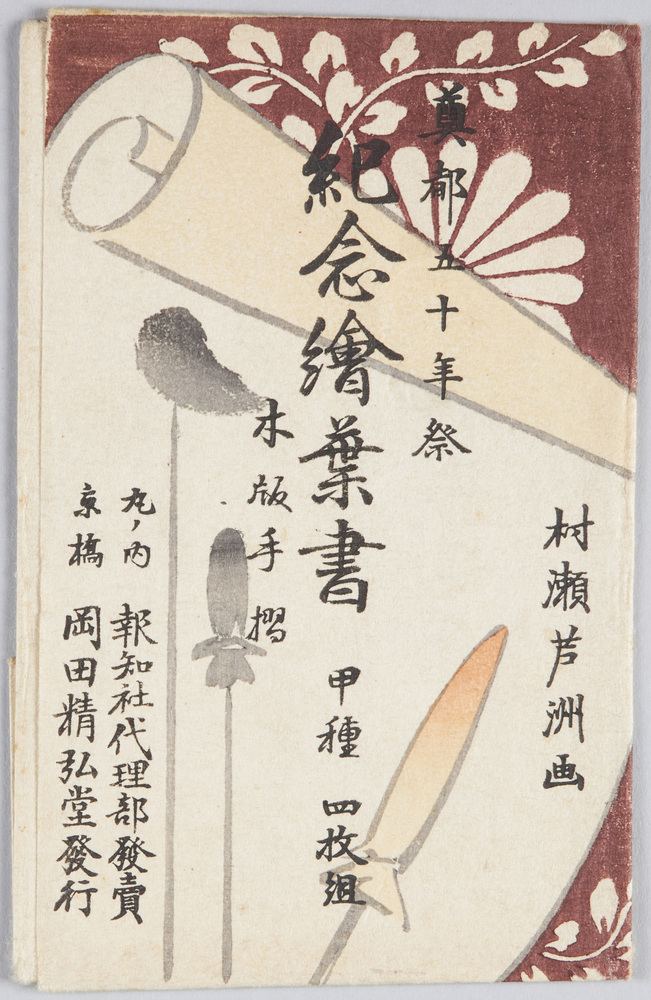 村瀬芦洲画
奠都五十年祭
紀念繪葉書
甲種 四枚組
木版手摺
丸ノ内 報知社代理部發賣
京橋 岡田精弘堂發行